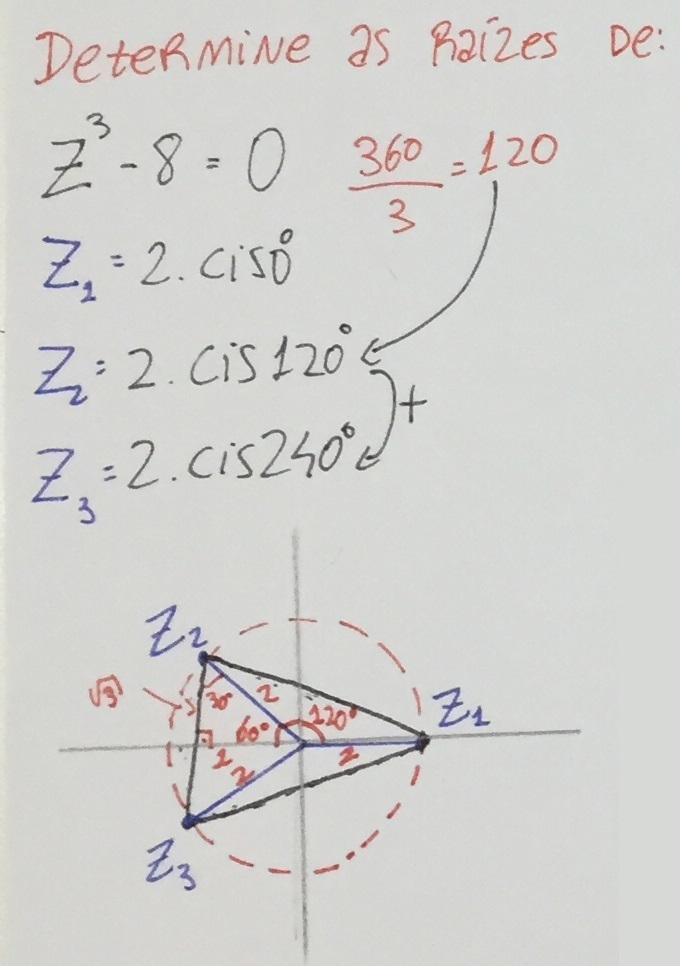 Determine as raízes de:
Z³ - 8 = 0
360/3 = 120
Z₁ = 2.cis0°
Z₂ = 2.cis120°
+
Z₃ = 2.cis240°
Z₂
√3
30°
2
60°
120°
Z₁
1
2
2
Z₃